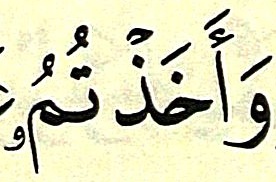 وَأَخَذْتُمُۥ